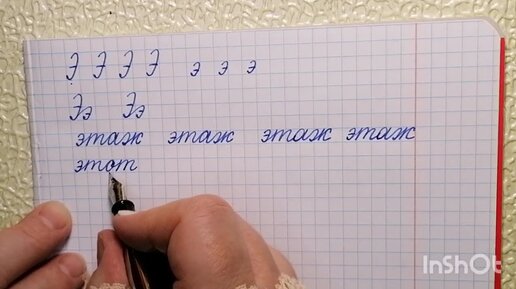 Э Э Э Э э э э
Ээ Ээ
этаж этаж этаж этаж
этот
InShOt